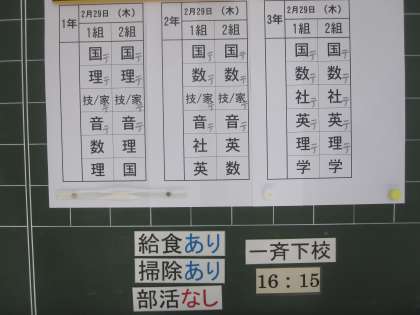 1年 2月29日 (木)
1組 2組
国テ 国テ
理テ 理テ
技/家テ 技/家テ
音テ 音テ
数 理
理 国
2年 2月29日 (木)
1組 2組
国テ 国テ
数テ 数テ
技/家テ 技/家テ
音テ 音テ
社 英
英 数
3年 2月29日 (木)
1組 2組
国テ 国テ
数テ 数テ
社テ 社テ
英テ 英テ
理テ 理テ
学 学
給食あり
掃除あり
部活なし
一斉下校
16:15